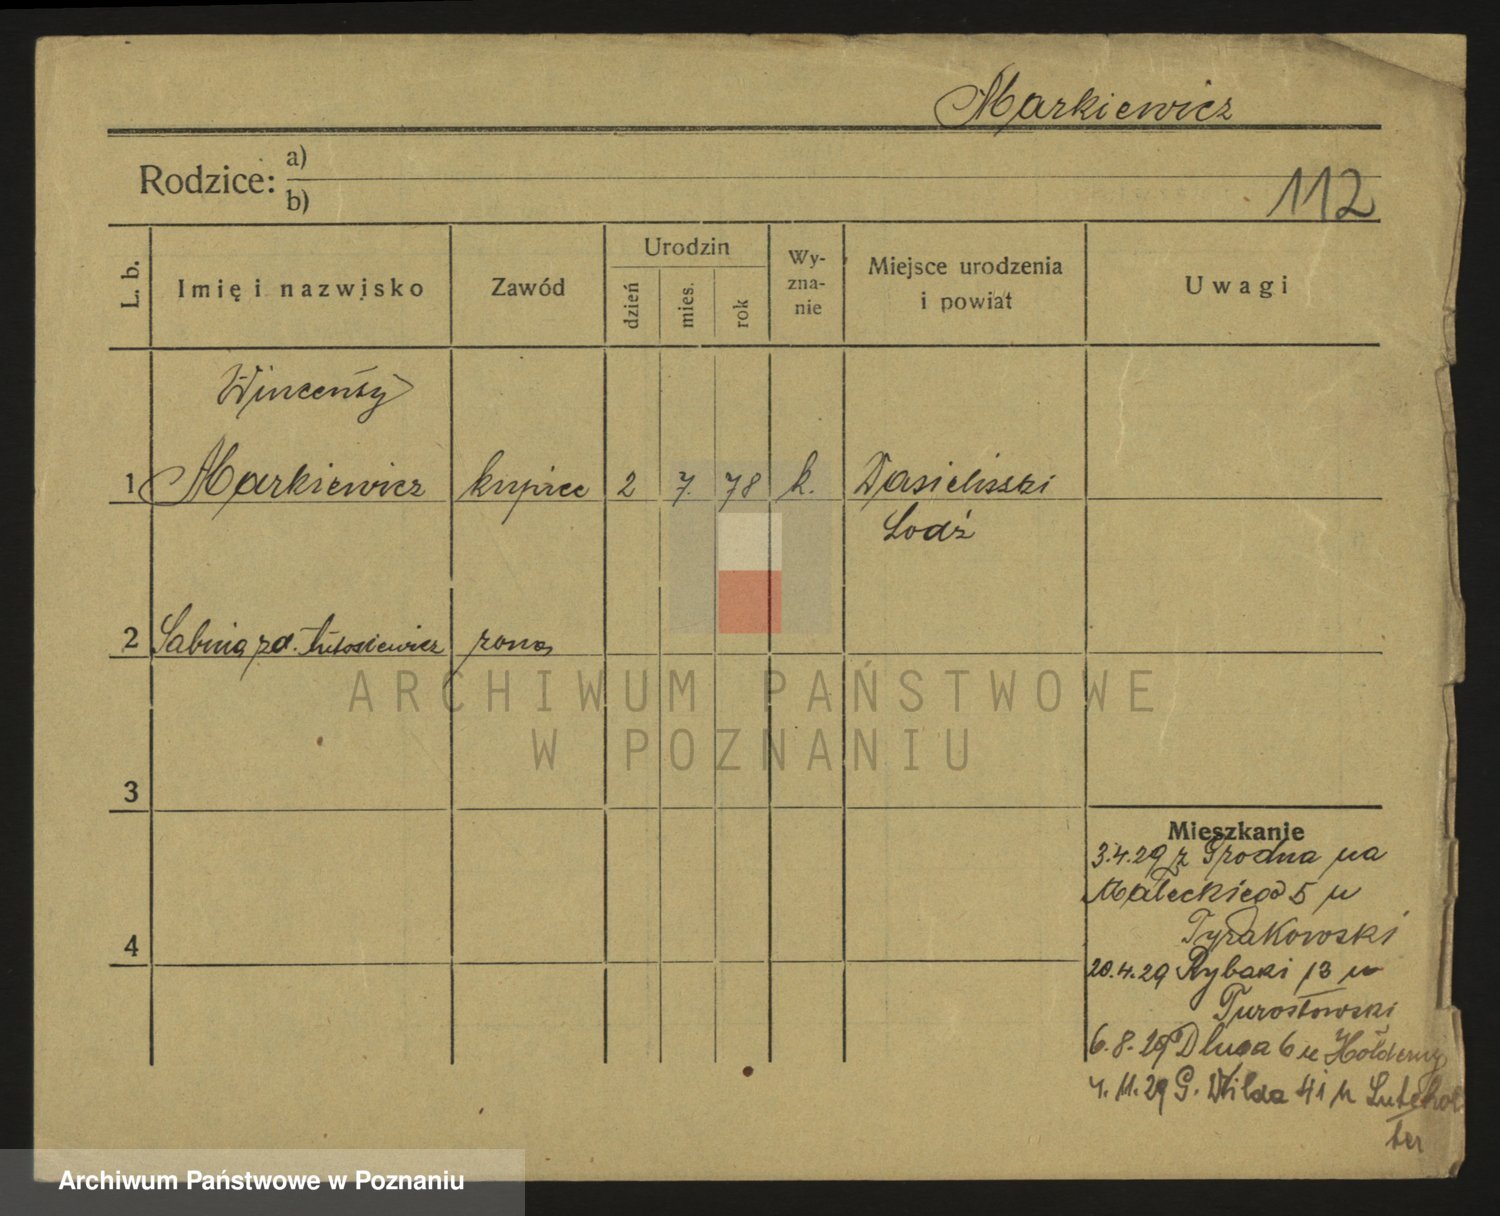 Markiewicz
Rodzice: a)
b)
112
L. b.
Imię i nazwisko
Zawód
Urodzin
dzień
mies.
rok
Wy-
zna-
nie
Miejsce urodzenia
i powiat
Uwagi
Wincenty
1 Markiewicz kupiec 2 7. 78 k.
Łodź
2 Sabina zd. żona
ARCHIWUM PAŃSTWOWE
W POZNANIU
3
Mieszkanie
3.4.29 z Grodna na
Małeckiego 5 u
Tyrakowski
4
20.4.29 Rybaki 13 u
Turostowski
6.8.29 Długa 6 u
4.11.29 G. Wilda 41 u
Archiwum Państwowe w Poznaniu